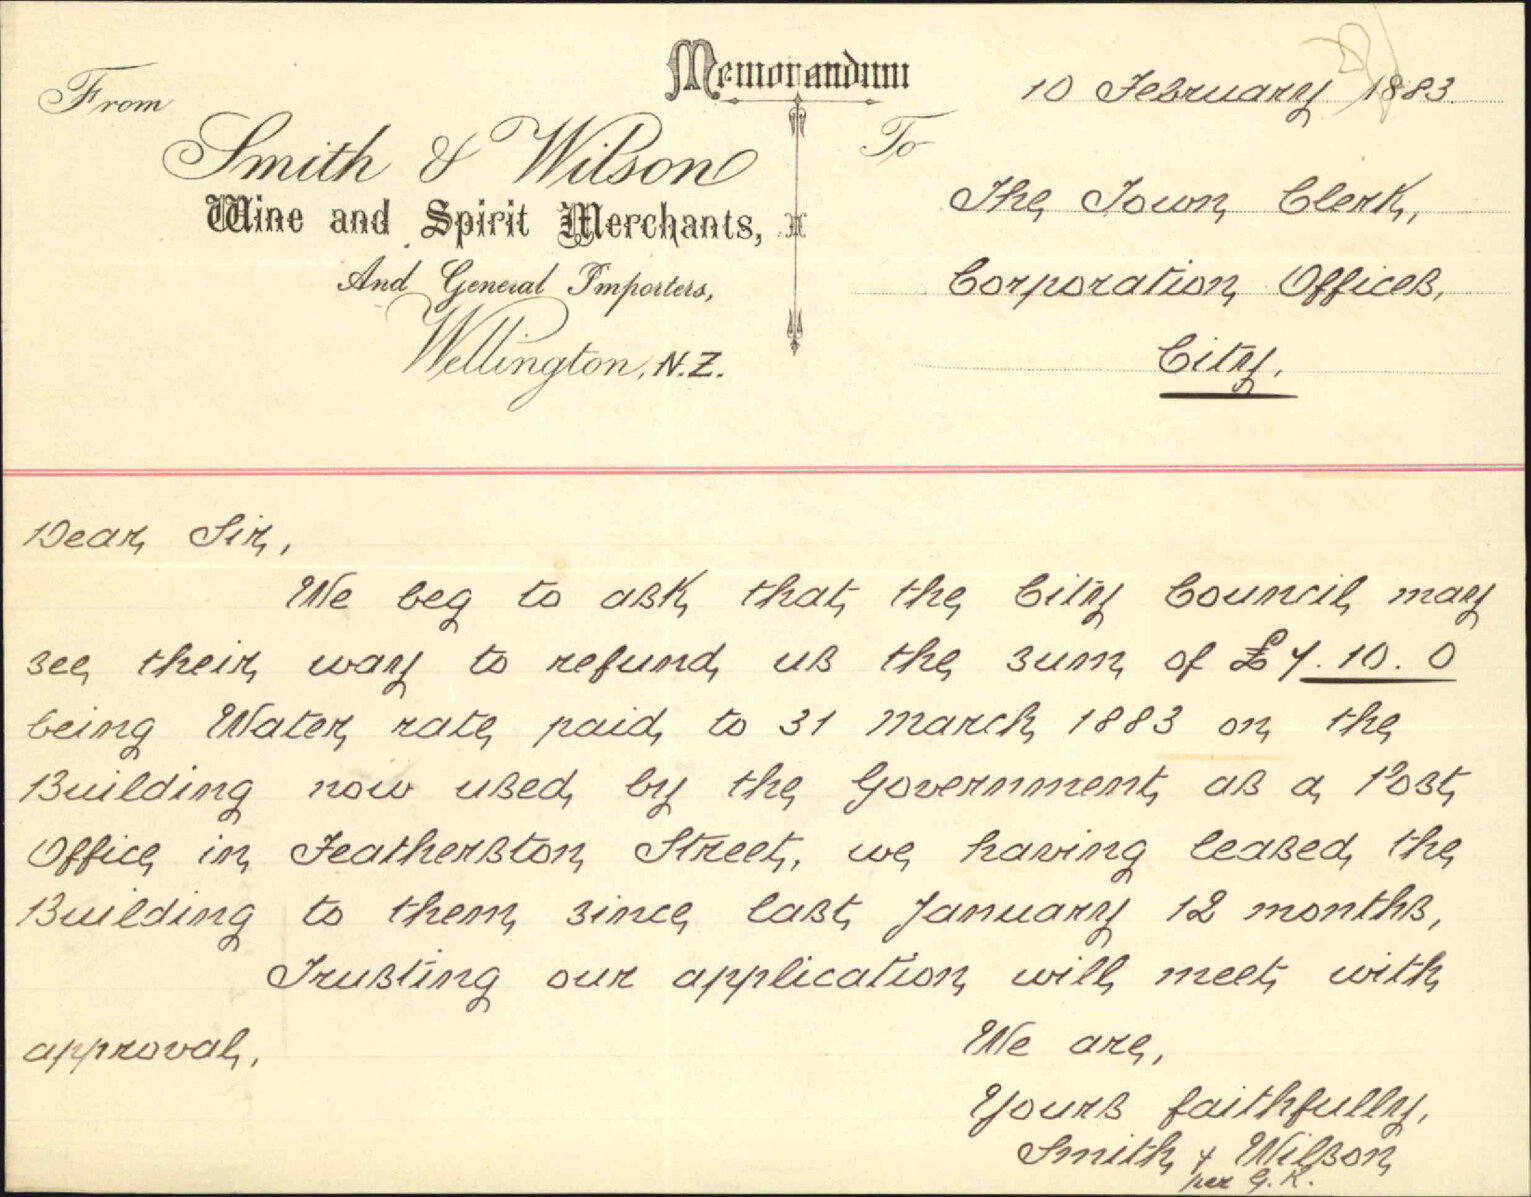 Memorandum
10 February 1883.
From
Smith & Wilson
Wine and Spirit Merchants,
And General Importers,
Wellington, N.Z.
To
The Town Clerk,
Corporation Offices,
City.
Dear Sir,
We beg to ask that the City Council may
see their way to refund us the sum of £7.10.0
being Water rate paid to 31 March 1883 on the
Building now used by the Government as a Post
Office in Featherston Street, we having leased the
Building to them since last January 12 months,
Trusting our application will meet with
approval,
We are,
Yours faithfully,
Smith & Wilson
per G.K.